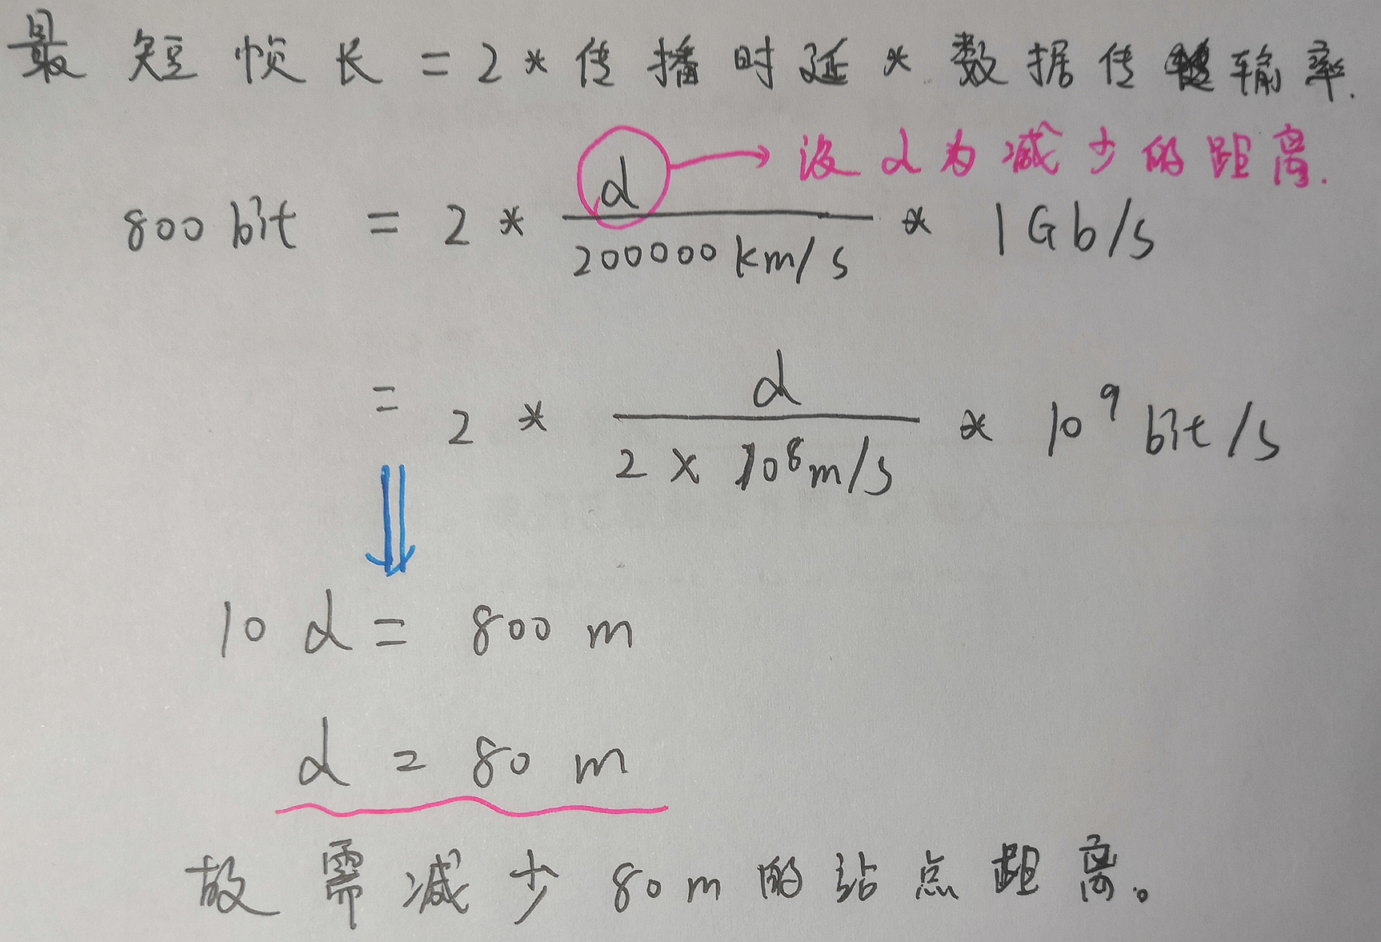 最短帧长 = 2 * 传播时延 * 数据传输率.
设 d 为减少的距离.
800 bit = 2 * d / 200000 km/s * 1Gb/s
= 2 * d / 2 × 10^8 m/s * 10^9 bit/s
10 d = 800 m
d = 80 m
故需减少 80 m 的站点距离。